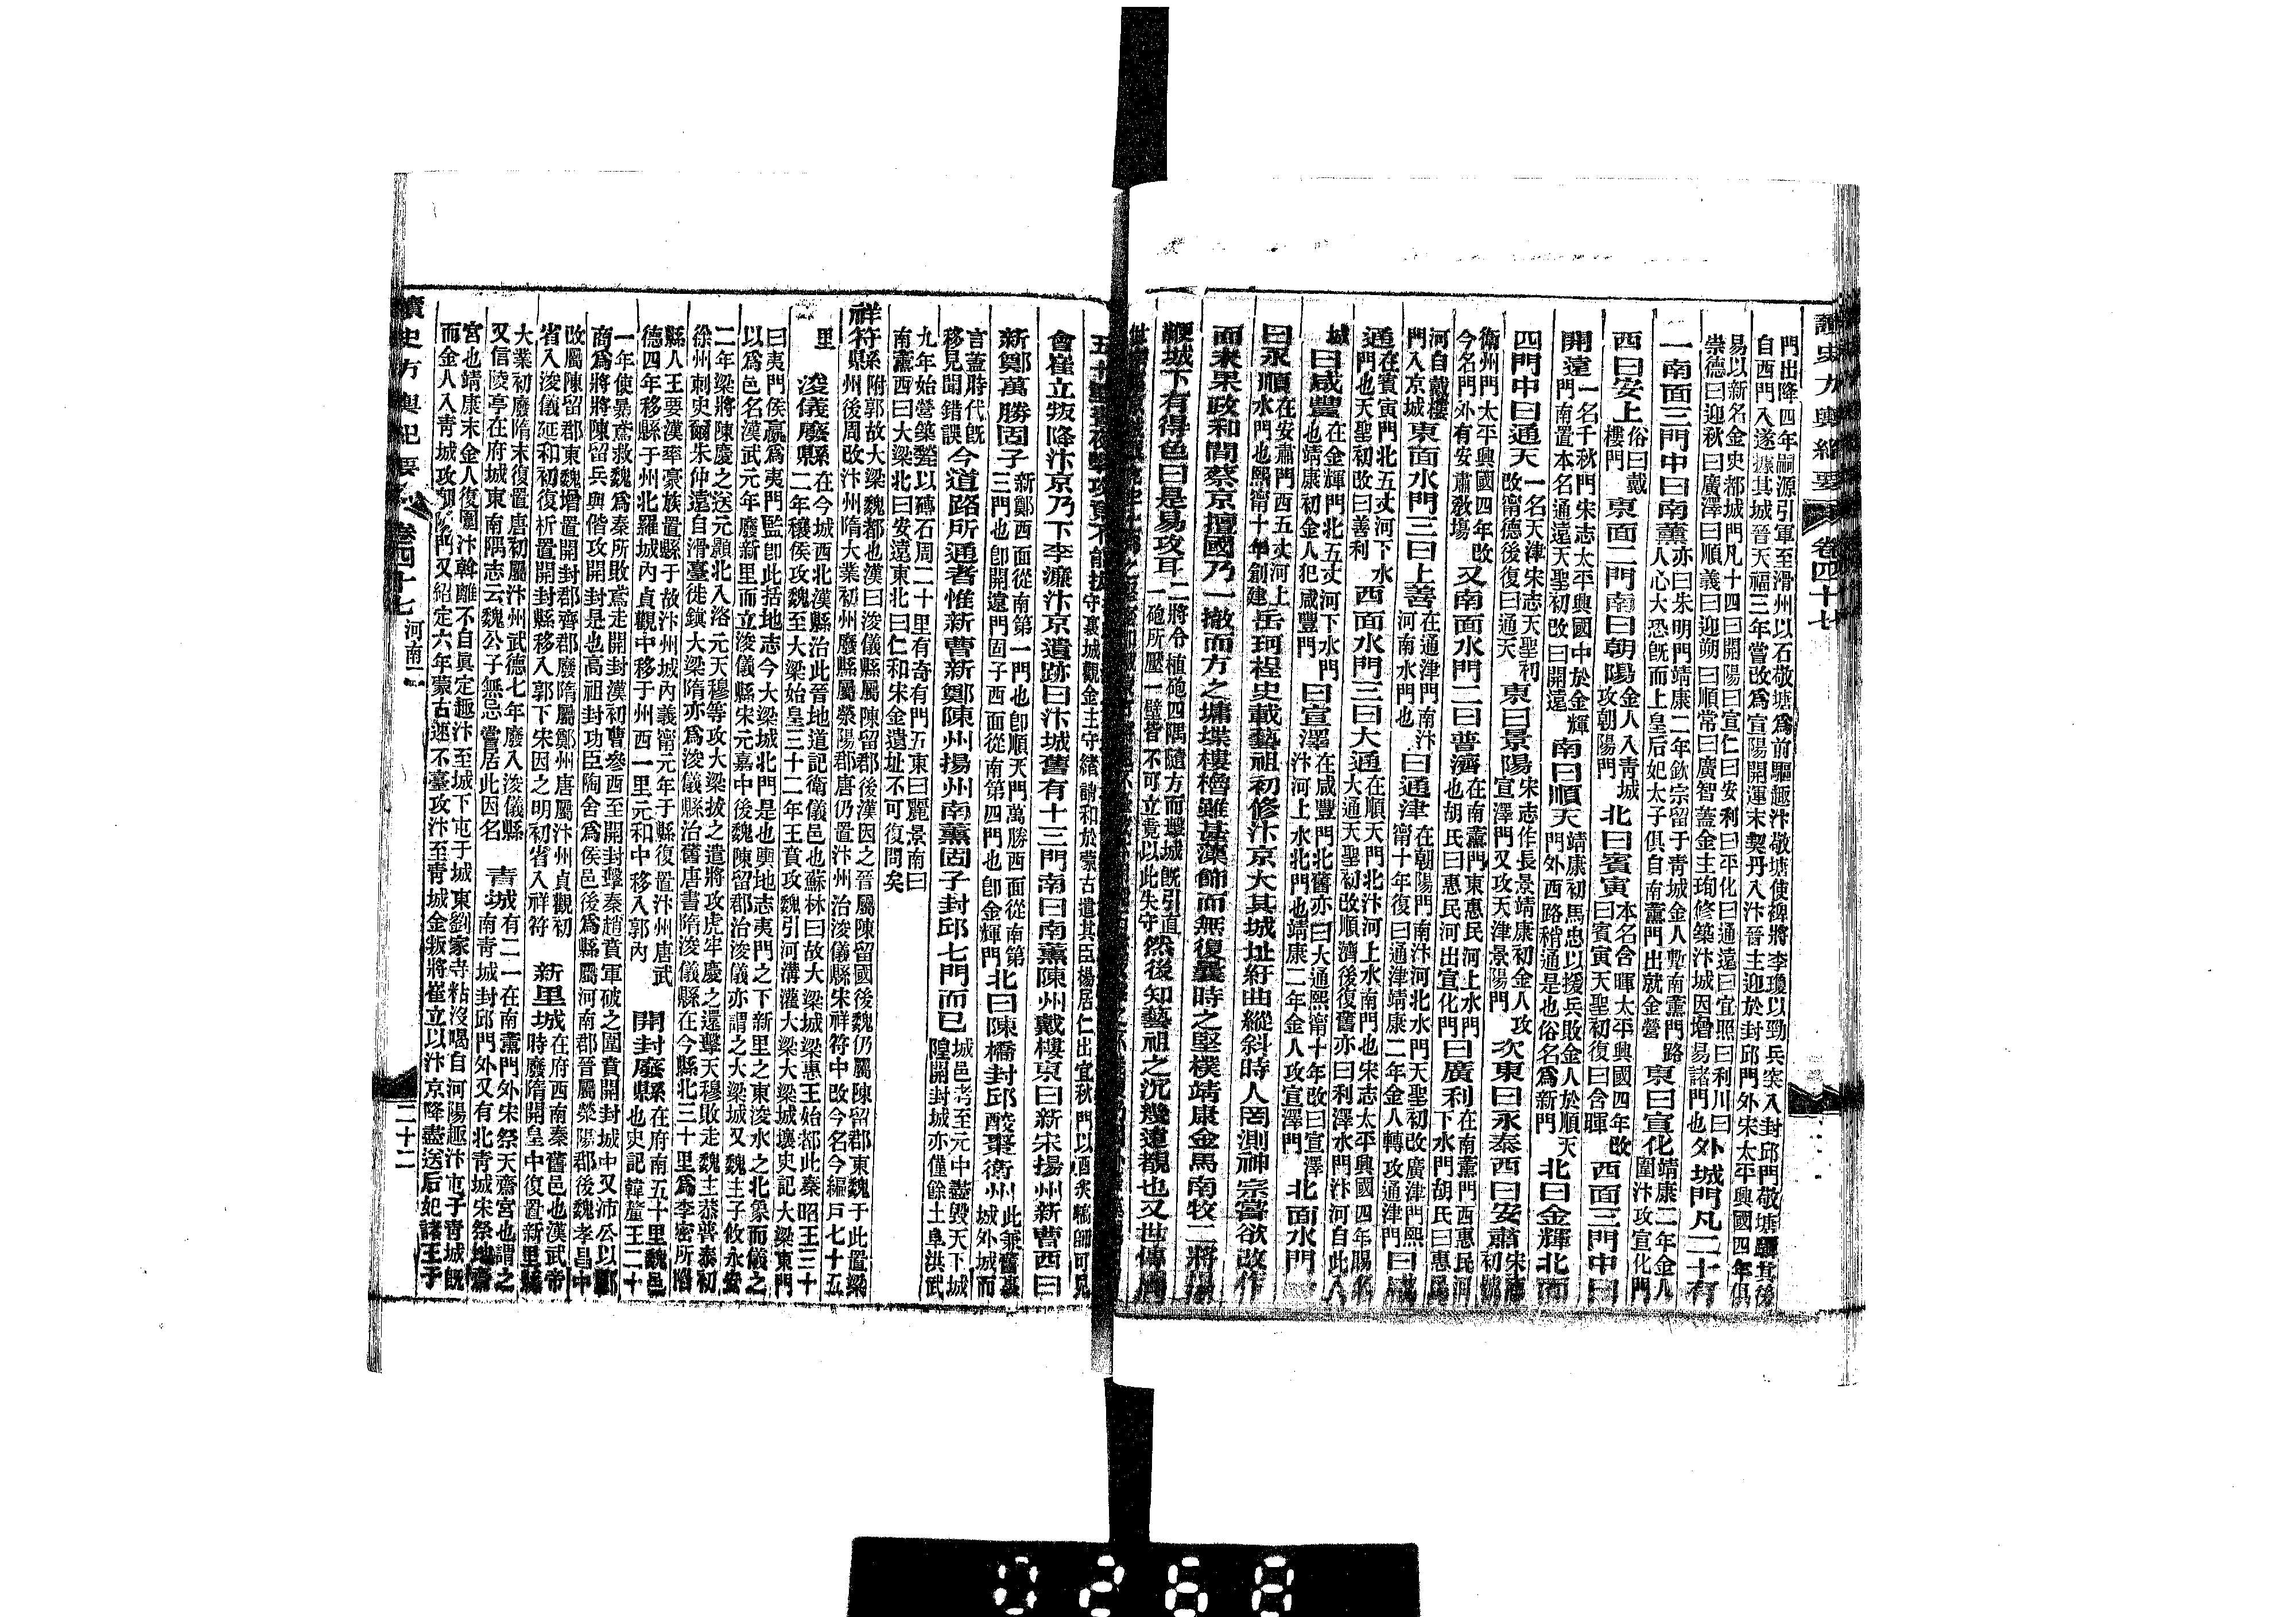 讀史方輿紀要 卷四十七
門出降四年嗣源引軍至滑州以石敬瑭為前驅趣汴敬瑭使裨將李瓊以勁兵突入封邱門敬瑭躡其後
自西門入遂據其城晉天福三年嘗改為宣陽開運末契丹入汴晉主迎於封邱門外宋太平興國四年俱
易以新名金史都城門凡十四曰開陽曰宣仁曰安利曰平化曰通遠曰宜照曰利川曰
崇德曰迎秋曰廣澤曰順義曰迎朔曰順常曰廣智蓋金主珣修築汴城因增易諸門也 外城門凡二十有
一南面三門中曰南薰 亦曰朱明門靖康二年欽宗留于青城金人塹南薰門路人心大恐旣而上皇后妃太子俱自南薰門出就金營 東曰宣化 靖康二年金人圍汴攻宣化門
西曰安上 俗曰戴樓門 東面二門南曰朝陽 金人入青城攻朝陽門 北曰賓寅 本名含暉太平興國四年改曰賓寅天聖初復曰含暉 西面三門中曰
開遠 一名千秋門宋志太平興國中於金輝門南置本名通遠天聖初改曰開遠 南曰順天 靖康初馬忠以援兵敗金人於順天門外西路稍通是也俗名為新門 北曰金輝北面
四門中曰通天 一名天津宋志天聖初改甯德後復曰通天 東曰景陽 宋志作長景靖康初金人攻宣澤門又攻天津景陽門 次東曰永泰西曰安肅 初號
衞州門太平興國四年改今名門外有安肅敎場 又南面水門二曰普濟 在南薰門東惠民河上水門也胡氏曰惠民河出宣化門 曰廣利 在南薰門西惠民河下水門胡氏曰惠民
河自戴樓門入京城 東面水門三曰上善 在通津門南汴河南水門也 曰通津 在朝陽門南汴河北水門天聖初改廣津門熙甯十年復曰通津靖康二年金人轉攻通津門 曰
通 在賓寅門北五丈河下水門也天聖初改曰善利 西面水門三曰大通 在順天門北汴河上水南門也宋志太平興國四年賜名大通天聖初改順濟後復舊亦曰利澤水門汴河自此入
城 曰咸豐 在金輝門北五丈河下水門也靖康初金人犯咸豐門 曰宣澤 在咸豐門北舊亦曰大通熙甯十年改曰宣澤汴河上水北門也靖康二年金人攻宣澤門 北面水門
曰永順 在安肅門西五丈河上水門也熙甯十年創建 岳珂桯史載藝祖初修汴京大其城址紆曲縱斜時人罔測神宗嘗欲改作
而未果政和間蔡京擅國乃一撤而方之墉堞樓櫓雖甚藻飾而無復曩時之堅樸靖康金馬南牧二將揚
鞭城下有得色曰是易攻耳 二將令植砲四隅隨方而擊城旣引直一砲所壓一壁皆不可立竟以此失守 然後知藝祖之沉幾遠覩也又世傳周
守裏城觀金主守緒請和於蒙古遣其臣楊居仁出宜秋門以酒炙犒師可見
會崔立叛降汴京乃下李濂汴京遺跡曰汴城舊有十三門南曰南薰陳州戴樓東曰新宋揚州新曹西曰
新鄭萬勝固子 新鄭西面從南第一門也卽順天門萬勝西面從南第三門也卽開遠門固子西面從南第四門也卽金輝門 北曰陳橋封邱酸棗衞州 此兼舊裏城外城而
言蓋時代旣移見聞錯誤 今道路所通者惟新曹新鄭陳州揚州南薰固子封邱七門而已 城邑考至元中盡毀天下城隍開封城亦僅餘土阜洪武
九年始營築甃以磚石周二十里有奇有門五東曰麗景南曰
南薰西曰大梁北曰安遠東北曰仁和宋金遺址不可復問矣
祥符縣 附郭故大梁魏都也漢曰浚儀縣屬陳留郡後漢因之晉屬陳留國後魏仍屬陳留郡東魏于此置梁州後周改汴州隋大業初州廢縣屬滎陽郡唐仍置汴州治浚儀縣宋祥符中改今名今編戶七十五
里 浚儀廢縣 在今城西北漢縣治此晉地道記衞儀邑也蘇林曰故大梁城梁惠王始都此秦昭王三十二年穰侯攻魏至大梁始皇二十二年王賁攻魏引河溝灌大梁大梁城壞史記大梁東門
曰夷門侯嬴為夷門監卽此括地志今大梁城北門是也輿地志夷門之下新里之東浚水之北象而儀之
以為邑名漢武元年廢新里而立浚儀縣宋元嘉中後魏陳留郡治浚儀亦謂之大梁城又魏主子攸永安
二年梁將陳慶之送元顥北入洛元天穆等攻大梁拔之遣將攻虎牢慶之還擊天穆敗走魏主恭普泰初
徐州刺史爾朱仲遠自滑臺徙鎮大梁隋亦為浚儀縣治舊唐書隋浚儀縣在今縣北三十里為李密所陷
縣人王要漢率豪族置縣于故汴州城內義甯元年于縣復置汴州唐武
德四年移縣于州北羅城內貞觀中移于州西一里元和中移入郭內 開封廢縣 在府南五十里魏邑也史記韓釐王二十
一年使暴鳶救魏為秦所敗鳶走開封漢初曹參西至開封擊秦趙賁軍破之圍賁開封城中又沛公以酈
商為將將陳留兵與偕攻開封是也高祖封功臣陶舍為侯邑後為縣屬河南郡晉屬滎陽郡後魏孝昌中
改屬陳留郡東魏增置開封郡齊郡廢隋屬鄭州唐屬汴州貞觀初
省入浚儀延和初復析置開封縣移入郭下宋因之明初省入祥符 新里城 在府西南秦舊邑也漢武帝時廢隋開皇中復置新里縣
大業初廢隋末復置唐初屬汴州武德七年廢入浚儀縣
又信陵亭在府城東南隅志云魏公子無忌嘗居此因名 青城 有二一在南薰門外宋祭天齋宮也謂之南青城封邱門外又有北青城宋祭地齋
宮也靖康末金人復圍汴斡離不自眞定趣汴至城下屯于城東劉家寺粘沒喝自河陽趣汴屯于青城旣
而金人入青城攻朝陽門又紹定六年蒙古速不臺攻汴至青城金叛將崔立以汴京降盡送后妃諸王于
讀史方輿紀要 卷四十七 河南二 二十二
0268